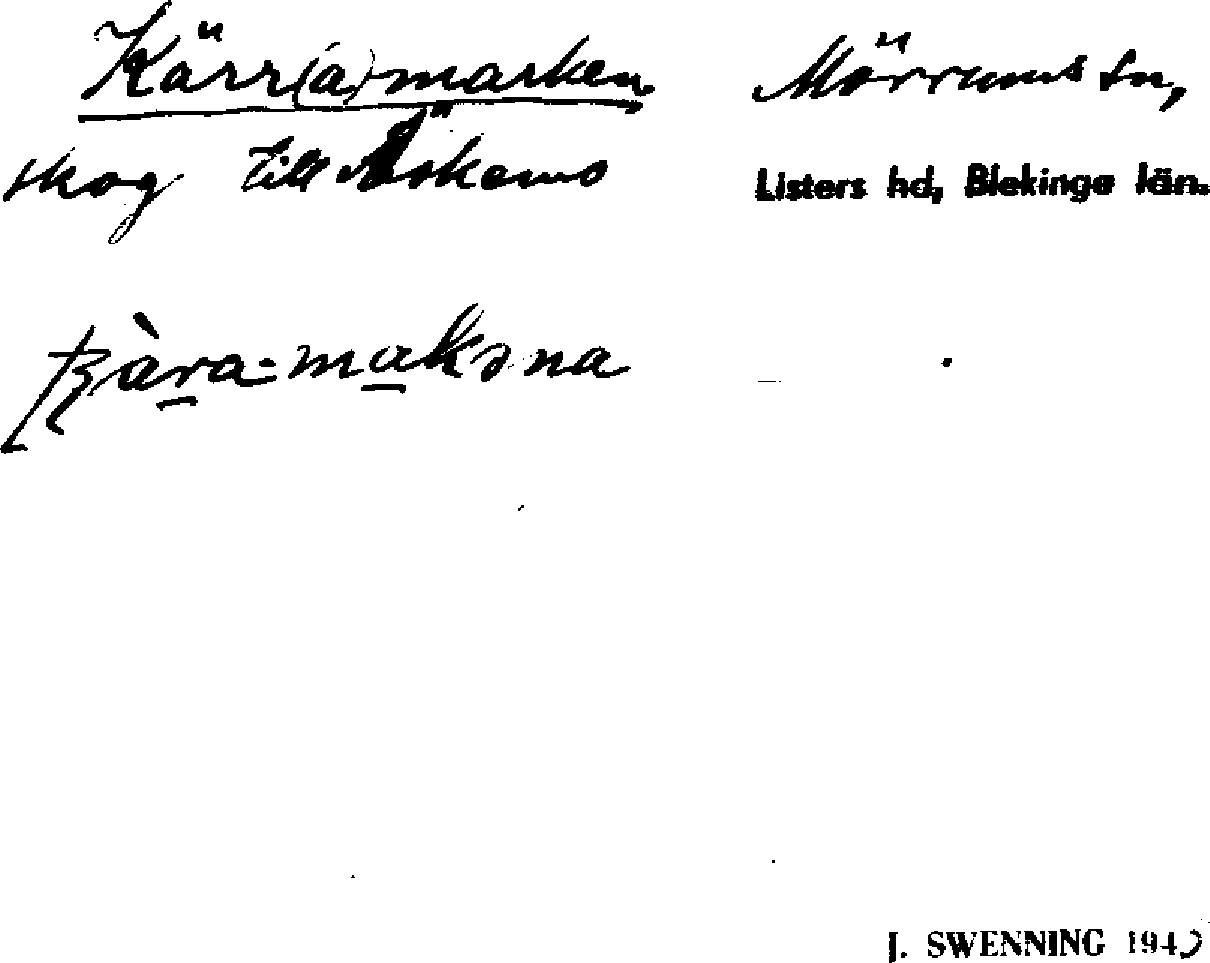 Kärr(a)marken, Mörrums sn,
skog till Åökemo Listers hd, Blekinge län.
J. SWENNING 194